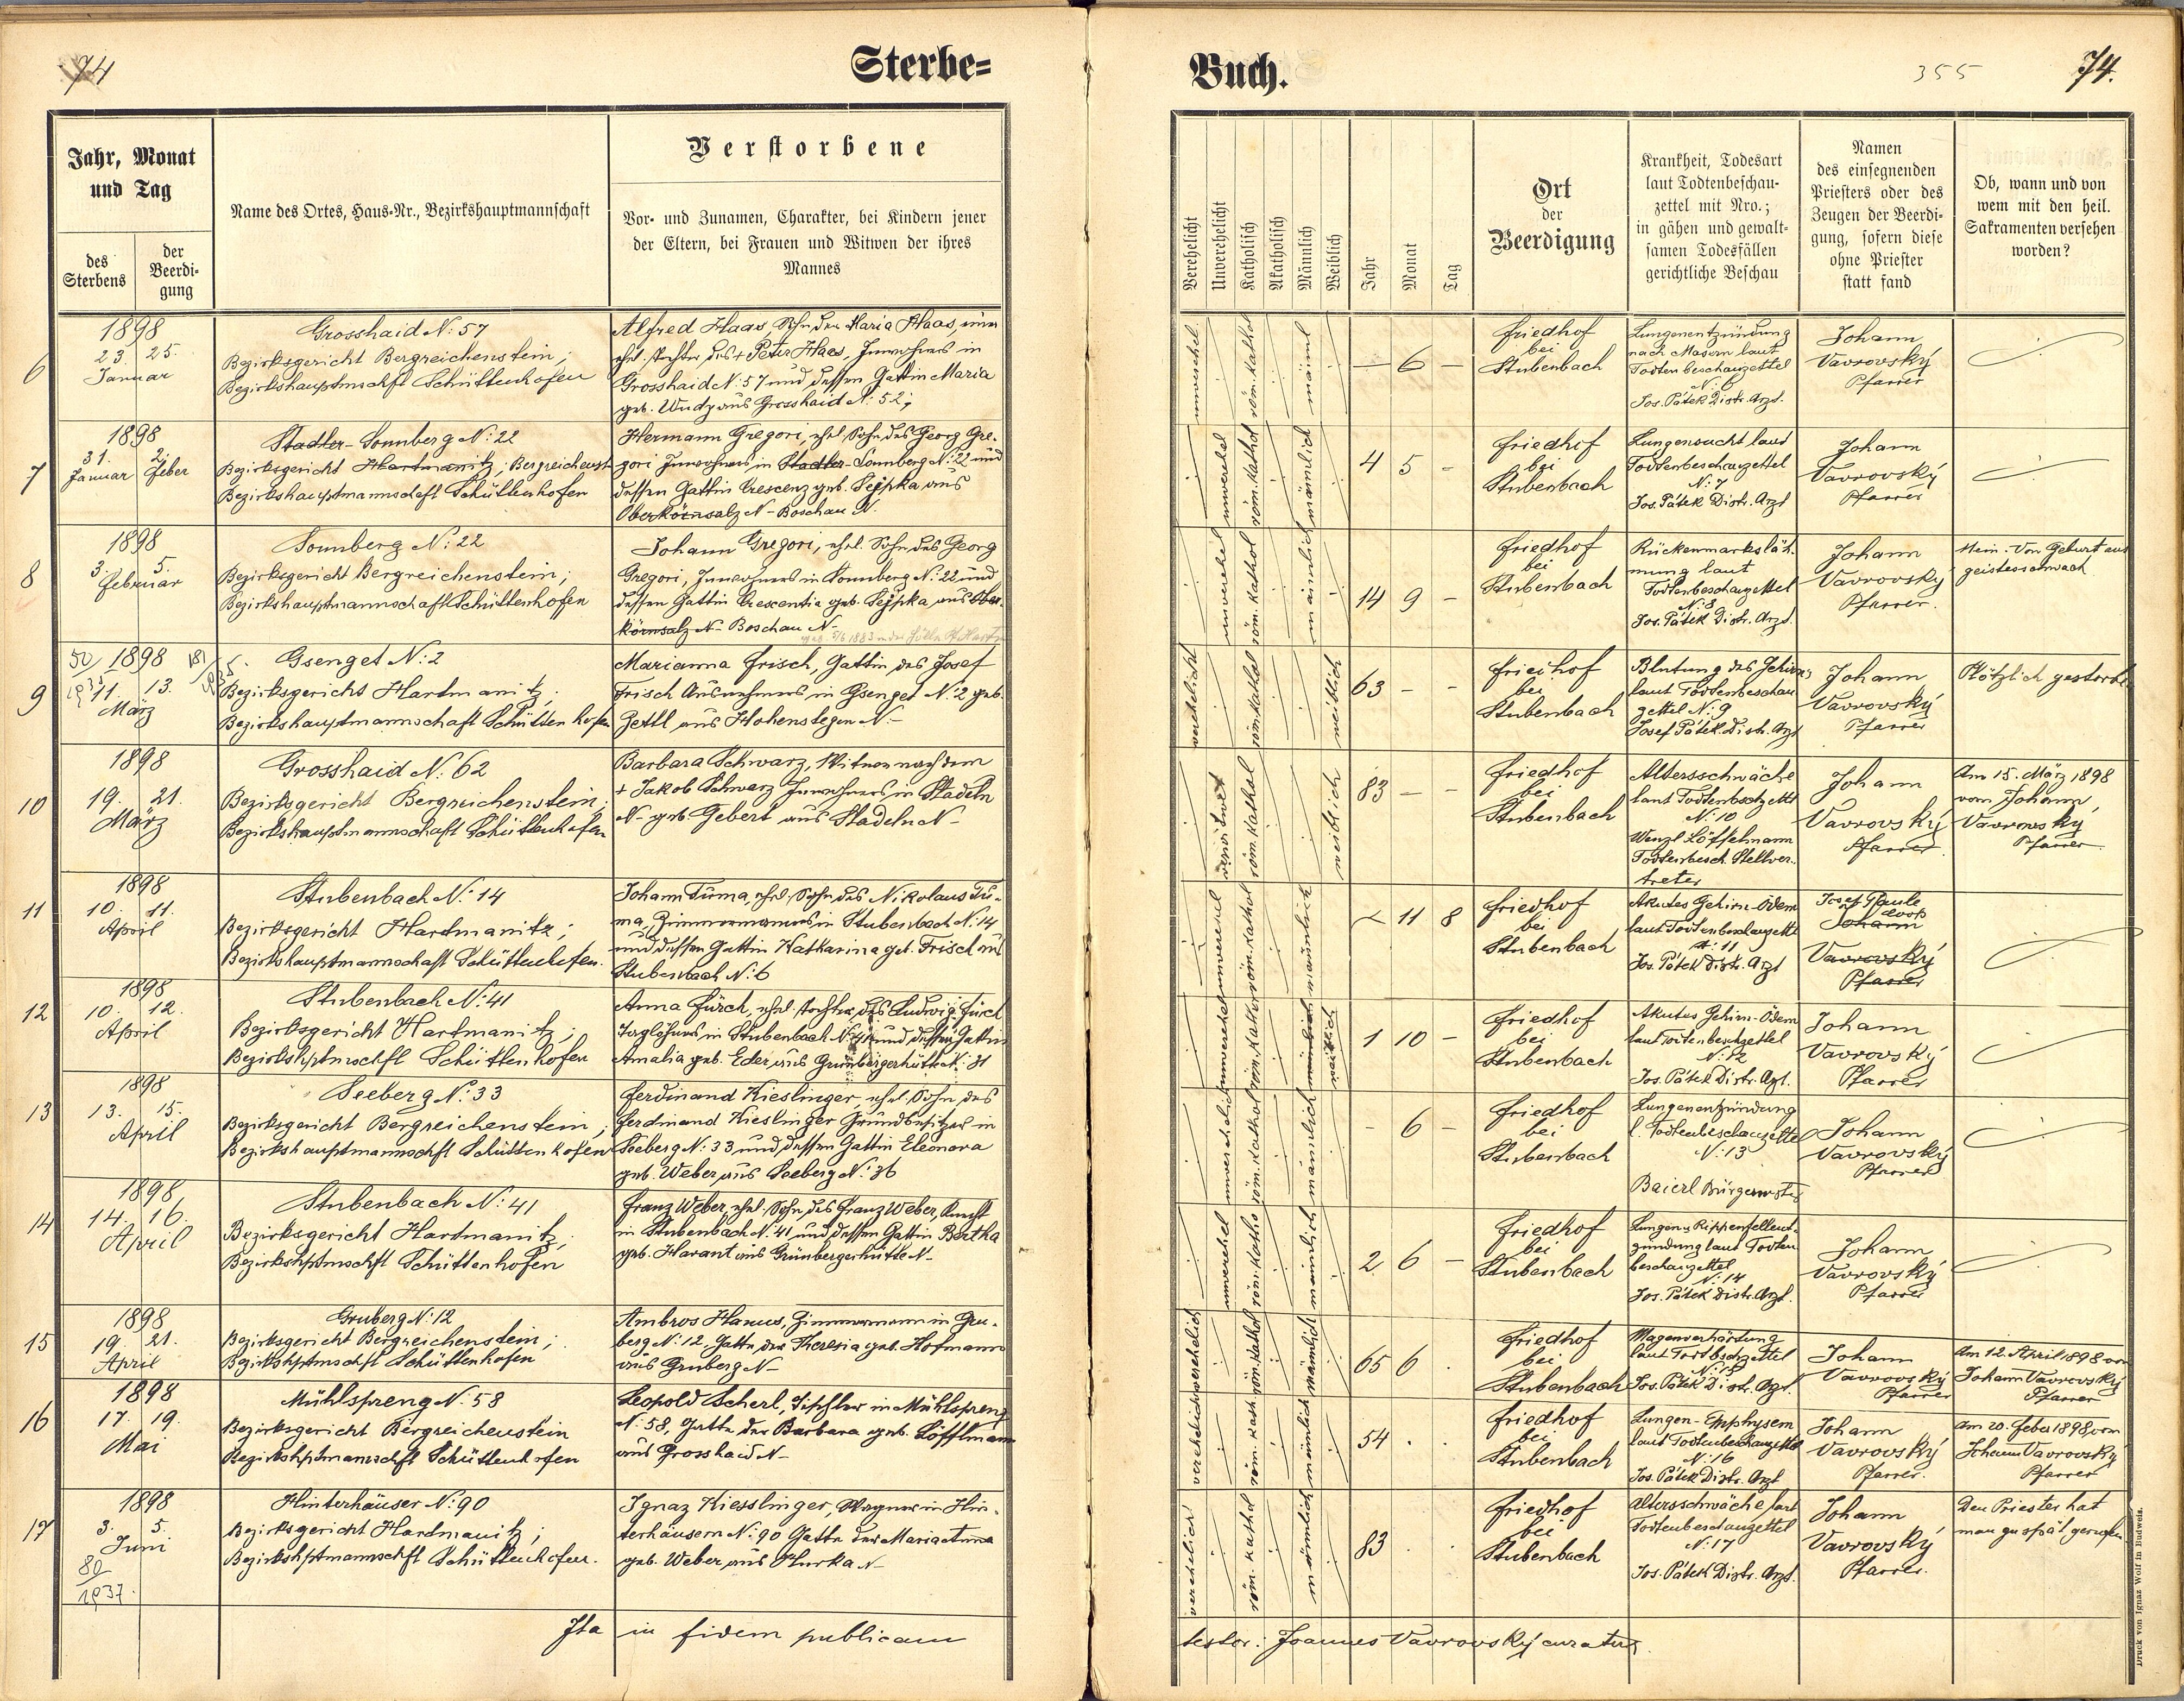 74
Sterbe=
Buch.
355
74.
Jahr, Monat
und Tag
des
Sterbens
der
Beerdi-
gung
Name des Ortes, Haus-Nr., Bezirkshauptmannschaft
Verstorbene
Vor- und Zunamen, Charakter, bei Kindern jener
der Eltern, bei Frauen und Witwen der ihres
Mannes
Verehelicht
Unverehelicht
Katholisch
Akatholisch
Männlich
Weiblich
Jahr
Monat
Tag
Ort
der
Beerdigung
Krankheit, Todesart
laut Todtenbeschau-
zettel mit Nro.;
in gähen und gewalt-
samen Todesfällen
gerichtliche Beschau
Namen
des einsegnenden
Priesters oder des
Zeugen der Beerdi-
gung, sofern diese
ohne Priester
statt fand
Ob, wann und von
wem mit den heil.
Sakramenten versehen
worden?
6
1898
23. 25.
Januar
Grosshaid N: 57
Bezirksgericht Bergreichenstein;
Bezirkshauptmschft Schüttenhofen
Alfred Haas, Sohn der Maria Haas,
ehel. Tochter des + Peter Haas, Inwohners in
Grosshaid N: 57 und dessen Gattin Maria
geb. Wudy aus Grosshaid N: 52;
unverehel.
röm. kathol
männl
— 6 —
Friedhof
bei
Stubenbach
Lungenentzündung
nach Masern laut
Todtenbeschauzettel
N: 6
Jos. Pátek Distr. Arzt.
Johann
Vavrovský
Pfarrer
7
1898
31. 2.
Januar Feber
Stadler-Sonnberg N: 22
Bezirksgericht Hartmanitz; Bergreichenst
Bezirkshauptmannschaft Schüttenhofen
Hermann Gregori, ehel. Sohn des Georg Gre-
gori Inwohners in Stadler-Sonnberg N: 22 und
dessen Gattin Crescenz geb. Sejpka aus
Oberkörnsalz N- Boschau N.
unverehel
röm. kathol
männlich
4 5 -
Friedhof
bei
Stubenbach
Lungensucht laut
Todtenbeschauzettel
N: 7
Jos. Pátek Distr. Arzt
Johann
Vavrovský
Pfarrer
8
1898
3. 5.
Februar
Sonnberg N: 22
Bezirksgericht Bergreichenstein;
Bezirkshauptmannschaft Schüttenhofen
Johann Gregori, ehel. Sohn des Georg
Gregori, Inwohners in Sonnberg N: 22 und
dessen Gattin Crescentia geb. Sejpka aus Ober-
körnsalz N- Boschau N-
geb. 5/6 1883
unverehel
röm. kathol
männlich
14 9 -
Friedhof
bei
Stubenbach
Rückenmarksläh-
mung laut
Todtenbeschauzettel
N: 8
Jos. Pátek Distr. Arzt.
Johann
Vavrovský
Pfarrer.
Nein. Von Geburt aus
geistesschwach
9
1898
11. 13.
März
Gsenget N: 2
Bezirksgericht Hartmanitz;
Bezirkshauptmannschaft Schüttenhofen
Marianna Frisch, Gattin des Josef
Frisch Ausnehmers in Gsenget N: 2 geb.
Zettl aus Hohenstegen N-
verehelicht
röm. kathol
weiblich
63 - -
Friedhof
bei
Stubenbach
Blutung des Gehirns
laut Todtenbeschau
zettel N: 9
Josef Pátek Distr. Arzt
Johann
Vavrovský
Pfarrer
Plötzlich gestorben
10
1898
19. 21.
März
Grosshaid N: 62
Bezirksgericht Bergreichenstein;
Bezirkshauptmannschaft Schüttenhofen
Barbara Schwarz, Witwe nach dem
+ Jakob Schwarz Inwohners in Stadeln
N- geb. Gebert aus Stadeln N-
verwitwet
röm. kathol
weiblich
83 - -
Friedhof
bei
Stubenbach
Altersschwäche
laut Todtenbschzettl
N: 10
Wenzl Löffelmann
Todtenbesch. Stellver-
treter
Johann
Vavrovský
Pfarrer
Am 15. März 1898
vom Johann
Vavrovský
Pfarrer
11
1898
10. 11.
April
Stubenbach N: 14
Bezirksgericht Hartmanitz;
Bezirkshauptmannschaft Schüttenhofen.
Johann Tuma, ehel. Sohn des Nikolaus Tu-
ma, Zimmermannes in Stubenbach N: 14
und dessen Gattin Katharina geb. Frisch aus
Stubenbach N: 6
röm. kathol
männlich
- 11 8
Friedhof
bei
Stubenbach
Akutes Gehirn-Ödem
laut Todtenbeschauzettl
N: 11
Jos. Pátek Distr. Arzt
Josef Paule
Johann
Vavrovský
Pfarrer
12
1898
10. 12.
April
Stubenbach N: 41
Bezirksgericht Hartmanitz;
Bezirkshptmschft Schüttenhofen
Anna Fürch, ehel. Tochter des Ludwig Fürch
Taglöhners in Stubenbach N: 41 und dessen Gattin
Amalia geb. Eder aus Grünbergerhütte N: 31
unverehel
röm. kathol
weiblich
1 10 -
Friedhof
bei
Stubenbach
Akutes Gehirn-Ödem
laut Todtenbeschzettel
N: 12
Jos. Pátek Distr. Azt.
Johann
Vavrovský
Pfarrer
13
1898
13. 15.
April
Seeberg N: 33
Bezirksgericht Bergreichenstein;
Bezirkshauptmannschft Schüttenhofen
Ferdinand Kieslinger, ehel. Sohn des
Ferdinand Kieslinger Grundbesitzer in
Seeberg N: 33 und dessen Gattin Eleonora
geb. Weber aus Seeberg N: 36
unverehelich
röm. kathol
männlich
- 6 -
Friedhof
bei
Stubenbach
Lungenentzündung
l. Todtenbeschauzettel
N: 13
Baierl Bürgermstr
Johann
Vavrovský
Pfarrer
14
1898
14. 16.
April
Stubenbach N: 41
Bezirksgericht Hartmanitz,
Bezirkshptmschft Schüttenhofen
Franz Weber, ehel. Sohn des Franz Weber, Knecht
in Stubenbach N: 41 und dessen Gattin Bertha
geb. Harant aus Grünbergerhütte N-
unverehel
röm. katho
männlich
2 6 -
Friedhof
bei
Stubenbach
Lungen u Rippenfellent-
zündung laut Todten
beschauzettel
N: 14
Jos. Pátek Distr. Arzt.
Johann
Vavrovský
Pfarrer
15
1898
19. 21.
April
Gruberg N: 12
Bezirksgericht Bergreichenstein;
Bezirkshptmschft Schüttenhofen
Ambros Hanus, Zimmermann in Gru-
berg N: 12, Gatte der Theresia geb. Hofmann
aus Gruberg N-
verehelich
röm. kathol
männlich
65 6 .
Friedhof
bei
Stubenbach
Magenverhärtung
laut Todtbschzettel
N: 15
Jos. Pátek Distr. Arzt.
Johann
Vavrovský
Pfarrer
Am 12. April 1898 von
Johann Vavrovský
Pfarrer
16
1898
17. 19.
Mai
Mühlspreng N: 58
Bezirksgericht Bergreichenstein
Bezirkshptmannschft Schüttenhofen
Leopold Scherl, Tischler in Mühlspreng
N: 58, Gatte der Barbara geb. Löfflmann
aus Grosshaid N-
verehelich
röm. kath.
männlich
54 . .
Friedhof
bei
Stubenbach
Lungen-Emphysem
laut Todtenbeschauzettel
N: 16
Jos. Pátek Distr. Arzt
Johann
Vavrovský
Pfarrer.
Am 20. Feber 1898 vom
Johann Vavrovský
Pfarrer
17
1898
3. 5.
Juni
80
1937.
Hinterhäuser N: 90
Bezirksgericht Hartmanitz;
Bezirkshptmannschft Schüttenhofen.
Ignaz Kiesslinger, Wagner in Hin-
terhäusern N: 90 Gatte der Maria Anna
geb. Weber aus Hurka N-
verehelicht
röm. kathol
männlich
83 . .
Friedhof
bei
Stubenbach
Altersschwäche laut
Todtenbeschauzettel
N: 17
Jos. Pátek Distr. Arzt.
Johann
Vavrovský
Pfarrer.
Den Priester hat
man zu spät gerufen
Ita in fidem publicam
testor: Joannes Vavrovský curatus.
Druck von Ignaz Wolf in Budweis.